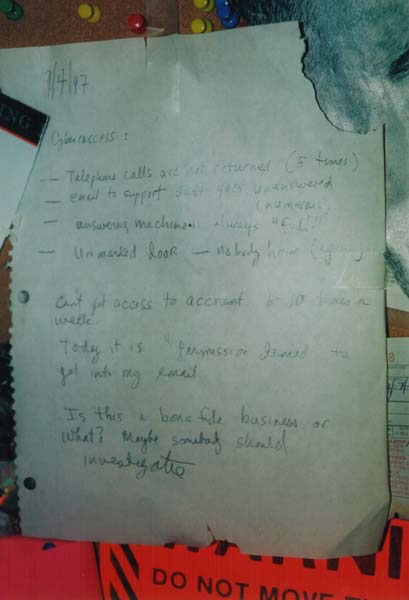 /4/97
Cyberaccess:
— Telephone calls are not returned (5 times)
— email to support goes unanswered
(numerous)
— answering machine always "full"!!!
— Unmarked door — nobody home (again)
Can't get access to account 6-10 times a
week.
Today it is "permission denied" to
get into my email.
Is this a bona fide business or
what? Maybe somebody should
investigate
DO NOT MOVE